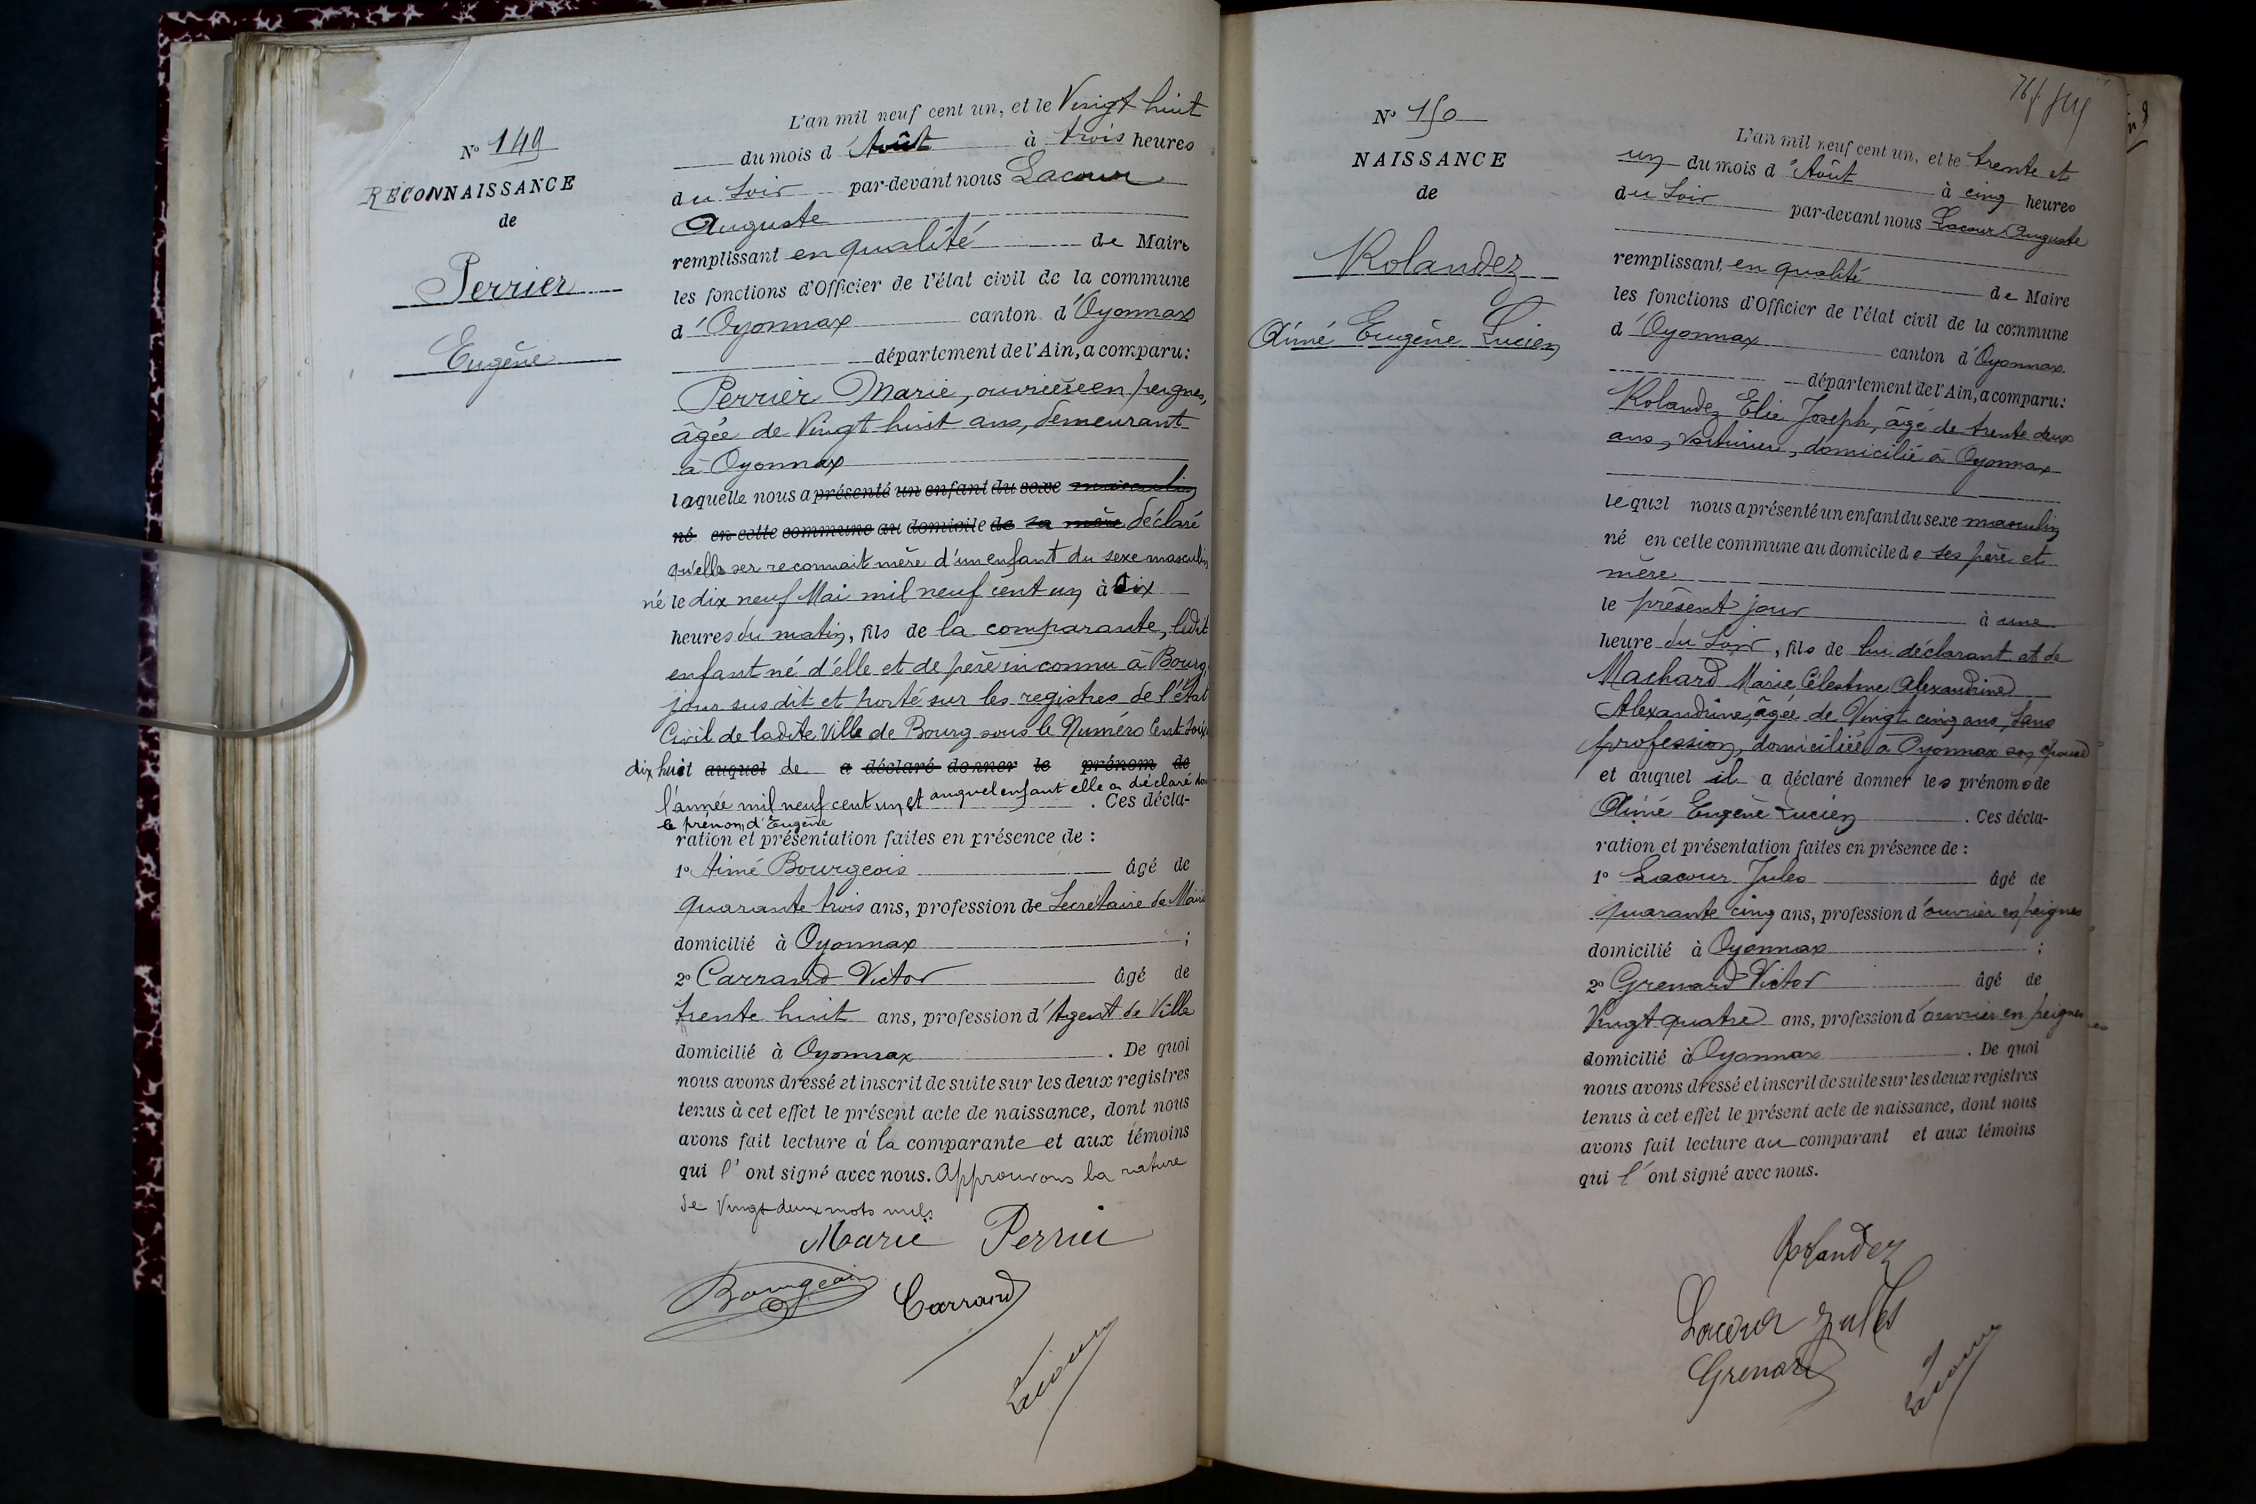 N° 149
RECONNAISSANCE
de
Perrier
Eugène
L'an mil neuf cent un, et le Vingt huit
du mois d'Août à trois heures
du Soir par-devant nous Lacour
Auguste
remplissant en qualité de Maire
les fonctions d'Officier de l'état civil de la commune
d'Oyonnax canton d'Oyonnax
département de l'Ain, a comparu:
Perrier Marie, ouvrière en peignes,
âgée de Vingt huit ans, demeurant
à Oyonnax
laquelle nous a présenté un enfant du sexe masculin
né en cette commune au domicile de sa mère déclaré
qu'elle se reconnait mère d'un enfant du sexe masculin
né le dix neuf Mai mil neuf cent un à dix
heures du matin, fils de la comparante, ledit
enfant né d'elle et de père inconnu à Bourg,
jour sus dit et porté sur les registres de l'état
Civil de ladite Ville de Bourg sous le Numéro Cent soix
dix huit auquel de a déclaré donner le prénom de
l'année mil neuf cent un, et auquel enfant elle a déclaré don
. Ces décla-
le prénom d'Eugène
ration et présentation faites en présence de :
1° Aimé Bourgeois âgé de
quarante trois ans, profession de Secrétaire de Mairie
domicilié à Oyonnax ;
2° Carrand Victor âgé de
trente huit ans, profession d'Agent de Ville
domicilié à Oyonnax . De quoi
nous avons dressé et inscrit de suite sur les deux registres
tenus à cet effet le présent acte de naissance, dont nous
avons fait lecture à la comparante et aux témoins
qui l'ont signé avec nous. Approuvons la rature
de Vingt deux mots nuls.
Marie Perrier
Bourgeois Carrand
Lacour
N° 150
NAISSANCE
de
Rolandez
Aimé Eugène Lucien
L'an mil neuf cent un, et le trente et
un du mois d'Août à cinq heures
du Soir par-devant nous Lacour Auguste
remplissant en qualité de Maire
les fonctions d'Officier de l'état civil de la commune
d'Oyonnax canton d'Oyonnax
département de l'Ain, a comparu:
Rolandez Elie Joseph, âgé de trente deux
ans, voiturier, domicilié à Oyonnax
lequel nous a présenté un enfant du sexe masculin
né en cette commune au domicile de ses père et
mère
le présent jour à une
heure du Soir, fils de lui déclarant et de
Machard Marie Célestine Alexandrine
Alexandrine, âgée de Vingt cinq ans, Sans
profession, domiciliée à Oyonnax son épouse
et auquel il a déclaré donner les prénoms de
Aimé Eugène Lucien . Ces décla-
ration et présentation faites en présence de :
1° Lacour Jules âgé de
quarante cinq ans, profession d'ouvrier en peignes
domicilié à Oyonnax ;
2° Grenard Victor âgé de
Vingt quatre ans, profession d'ouvrier en peignes
domicilié à Oyonnax . De quoi
nous avons dressé et inscrit de suite sur les deux registres
tenus à cet effet le présent acte de naissance, dont nous
avons fait lecture au comparant et aux témoins
qui l'ont signé avec nous.
Rolandez
Lacour Jules
Grenard
Lacour